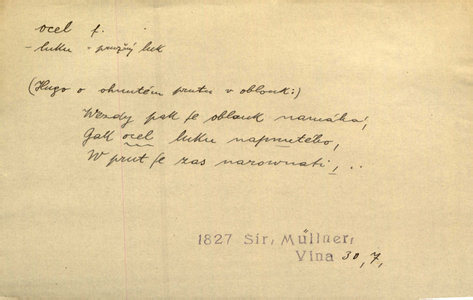 ocel f.
- luku - pružný luk
(Hugo o ohnutém prutu v oblouk:)
Wzdy pak se oblauk namáhá,
Gak ocel luku napnutého,
W prut se zas narownati, ..
1827 Sir, Müllner,
Vina 30, 7,